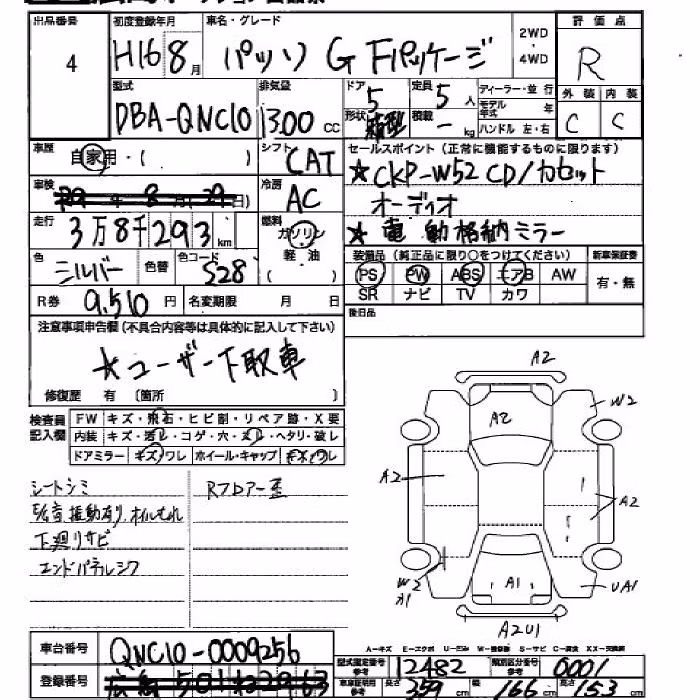 出品番号
4
初度登録年月
H16 8月
車名・グレード
パッソ G Fパッケージ
2WD
・
4WD
評価点
R
型式
DBA-QNC10
排気量
1300 CC
ドア
5
形状
箱型
定員
5人
積載
- kg
ディーラー・並行
モデル年式 年
ハンドル 左・右
外装
C
内装
C
車歴
自家用・( )
シフト
CAT
セールスポイント (正常に機能するものに限ります)
★CKP-W52 CD/カセット
オーディオ
★電動格納ミラー
車検
年 8月(29日)
冷房
AC
走行
3万8千293km
燃料
ガソリン
軽油
( )
色
シルバー
色替
色コード
S28
装備品 (純正品に限り○をつけてください)
PS PW ABS エアB AW
SR ナビ TV カワ
新車保証書
有・無
R券 9,510円
名変期限 月 日
後日品
注意事項申告欄 (不具合内容等は具体的に記入して下さい)
★ユーザー下取車
修復歴 有 〔箇所 〕
検査員
記入欄
FW キズ・飛石・ヒビ割・リペア跡・X要
内装 キズ・汚レ・コゲ・穴・スレ・ヘタリ・破レ
ドアミラー キズ・ワレ ホイール・キャップ キズ・ワレ
シートシミ
振動有り オイルもれ
下廻リサビ
エンドパネルシワ
Rフロアー歪
A2
A2
W2
A2
A2
W2
A1
A1
UA1
A2U1
A-キズ E-エクボ U-凹み W-補修跡 S-サビ C-腐食 XX-交換済
車台番号
QNC10-0009256
登録番号
型式指定番号
参考
12482
類別区分番号
参考
0001
車庫証明用
参考
長さ
359 cm
幅
166 cm
高さ
153 cm